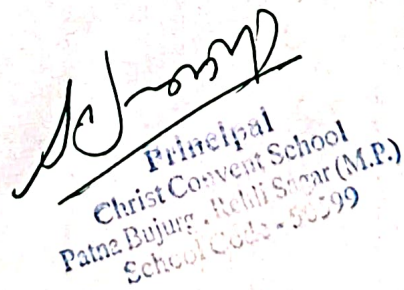 Principal
Christ Convent School
Patna Bujurg, Rehli Sagar (M.P.)
School Code -